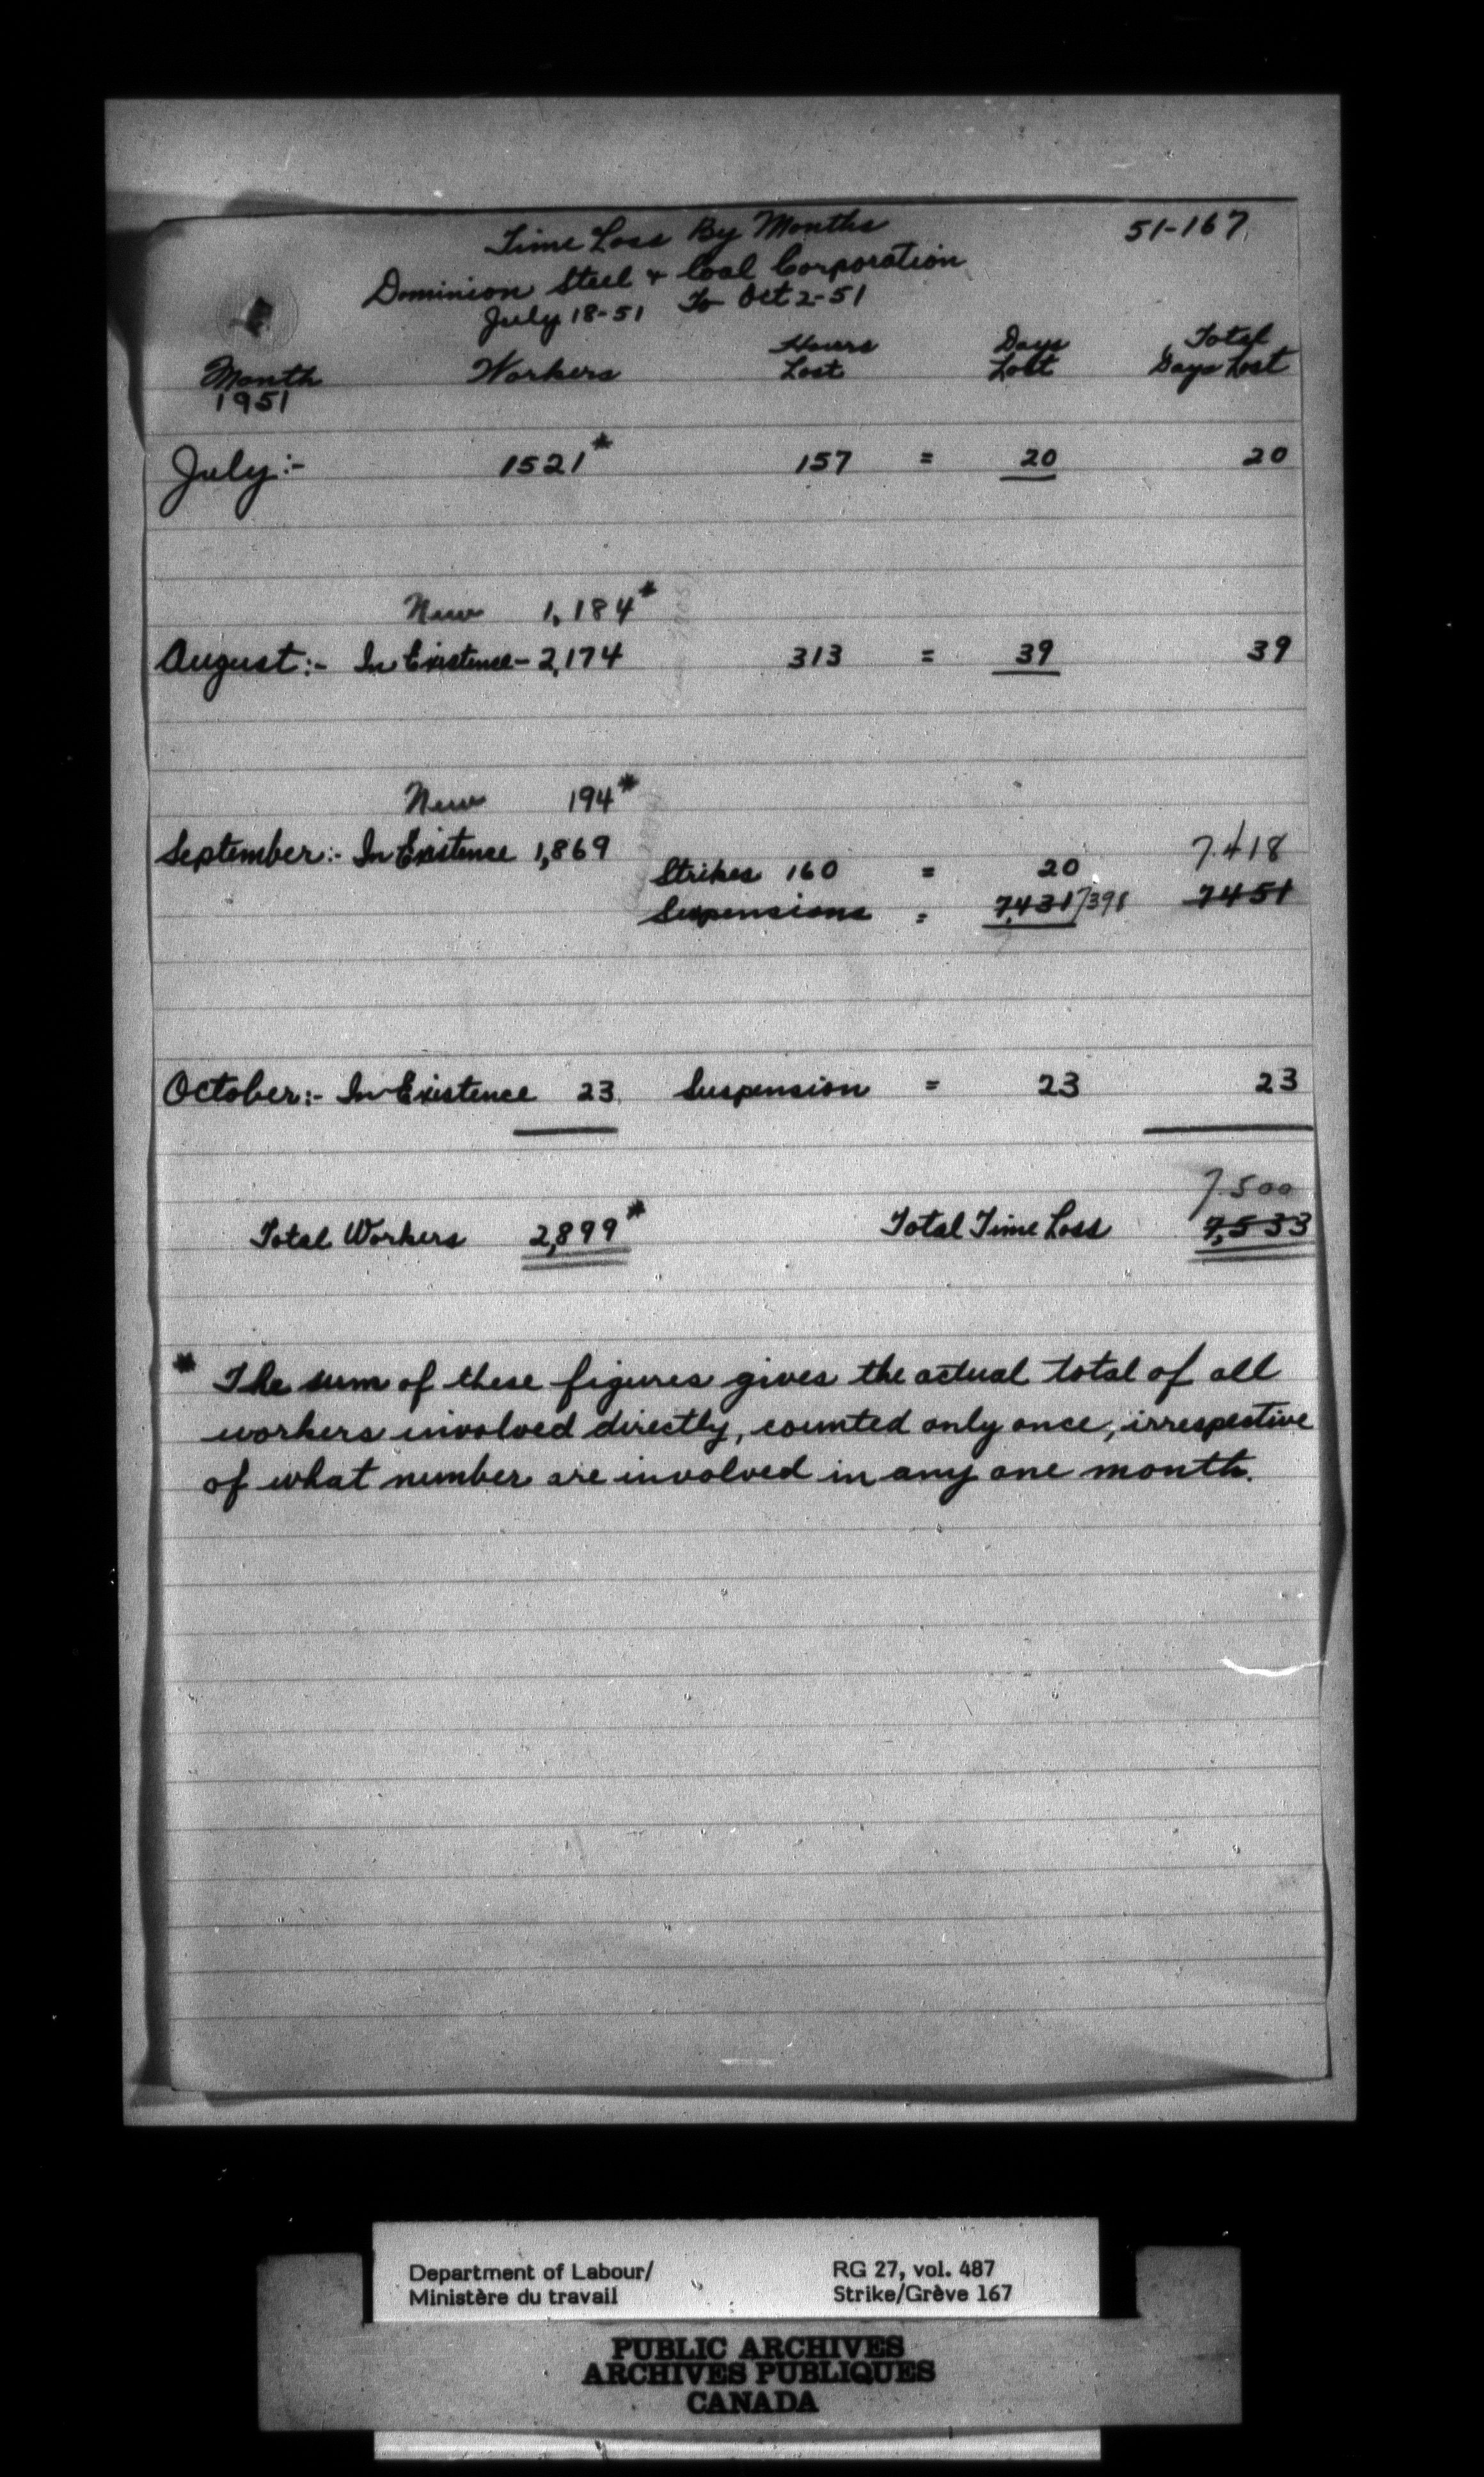 51-167
Time Loss By Months
Dominion Steel & Coal Corporation
July 18-51 To Oct 2-51
Month 1951 Workers Hours Lost Days Lost Total Days Lost
July:- 1521* 157 = 20 20
New 1,184*
August:- In Existence- 2,174 313 = 39 39
New 194*
September:- In Existence 1,869 7418
Strikes 160 = 20
Suspensions = 7,431 7398 7451
October:- In Existence 23 Suspension = 23 23
7500
Total Workers 2,899* Total Time Loss 7,533
* The sum of these figures gives the actual total of all
workers involved directly, counted only once, irrespective
of what number are involved in any one month.
Department of Labour/ RG 27, vol. 487
Ministère du travail Strike/Grève 167
PUBLIC ARCHIVES
ARCHIVES PUBLIQUES
CANADA